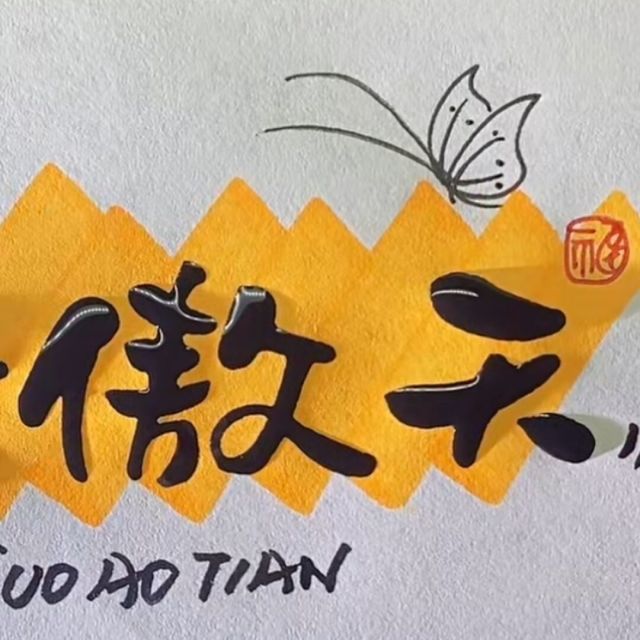 傲天
福
UO AO TIAN